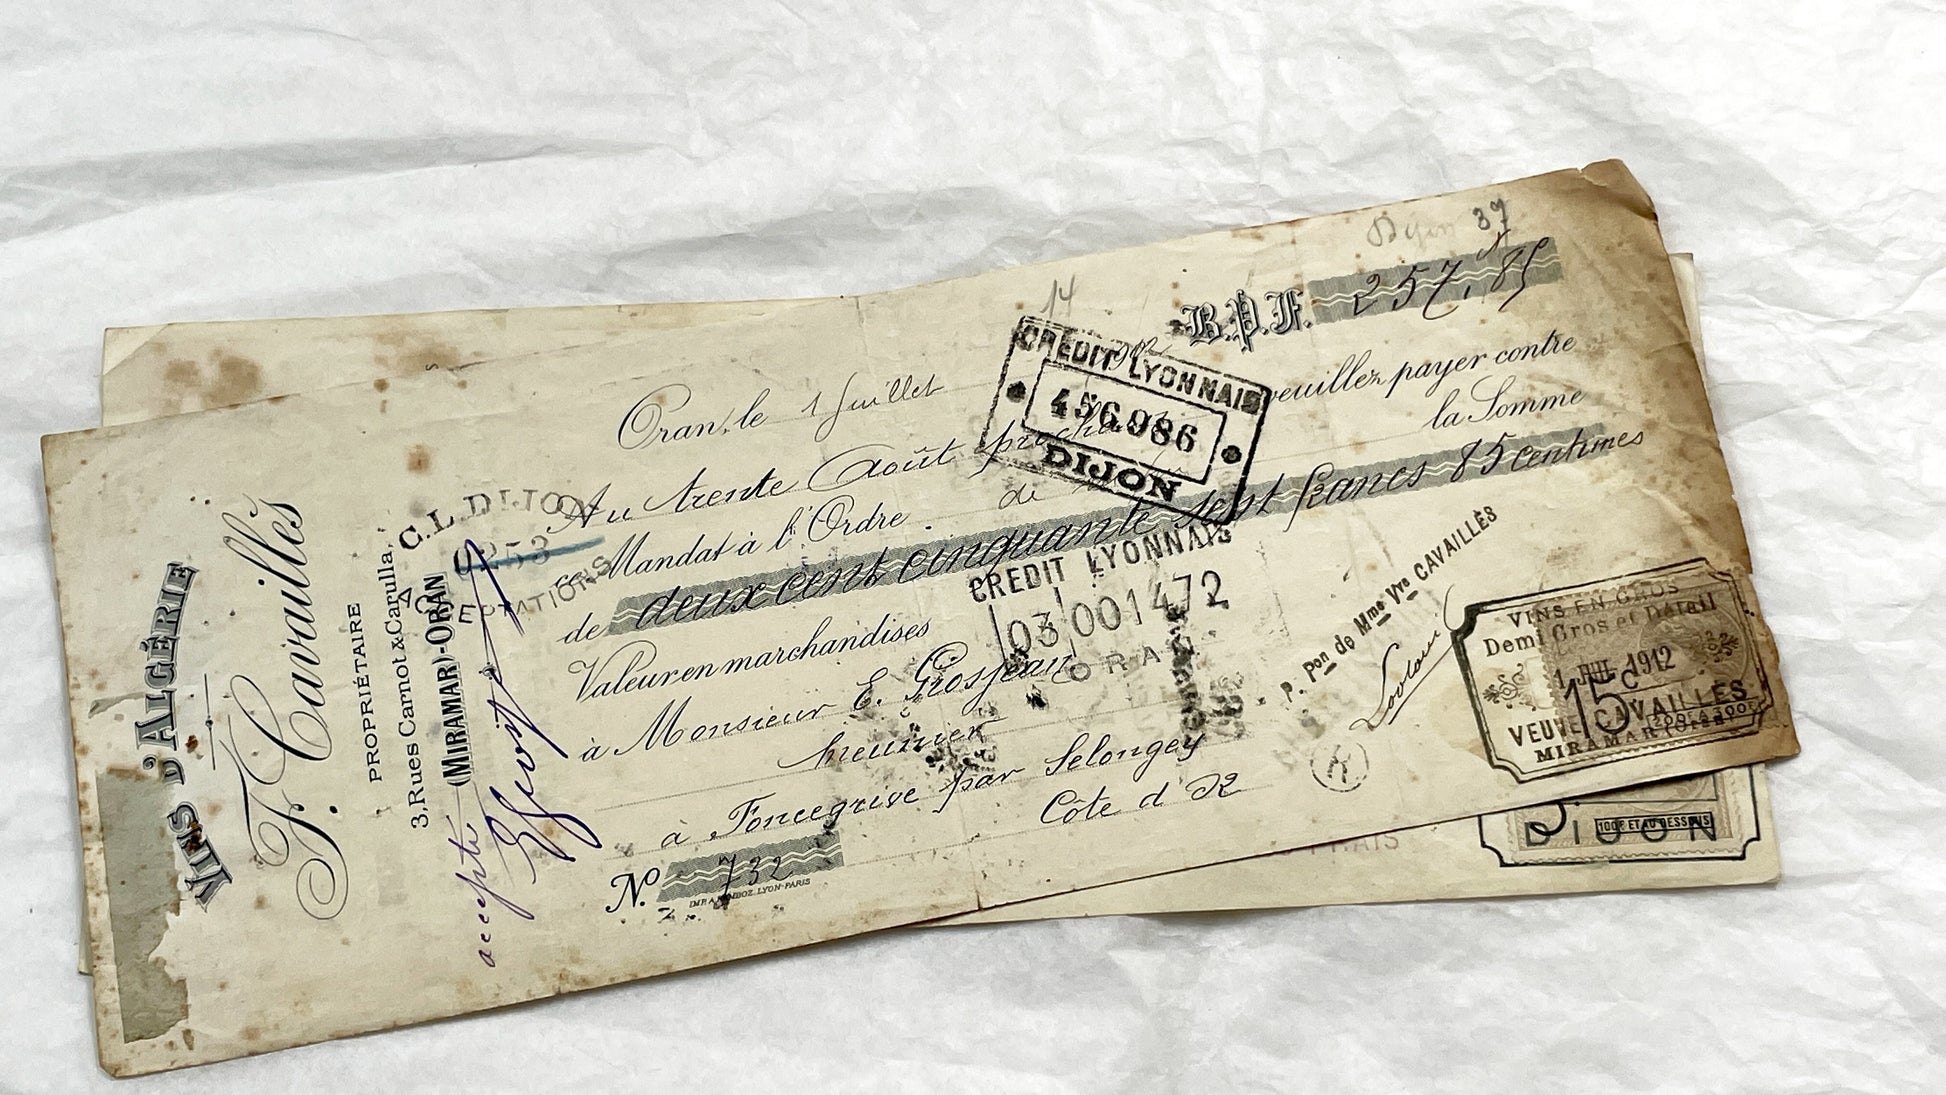 VINS D'ALGÉRIE
F. Cavaillès
PROPRIÉTAIRE
3, Rues Carnot & Carulla,
(MIRAMAR)-ORAN
accepté
C.L. DIJON
Dijon 37
14
B.P.F. 257,85
Oran, le 1 Juillet
CRÉDIT LYONNAIS
456986
DIJON
Au trente Août prochain veuillez payer contre
ce Mandat à l'Ordre de la Somme
de deux cent cinquante sept francs 85 centimes
Valeur en marchandises
CREDIT LYONNAIS
03 001472
ORAN
à Monsieur E. Grosjean
meunier
à Foncegrive par Selongey
Côte d'Or
No 732
LYON-PARIS
P. Pon de Mme Vve CAVAILLÈS
VINS EN GROS
Demi Gros et Détail
1 JUIL 1912
15c
VEUVE CAVAILLÈS
MIRAMAR (Oran)
100F ET AU DESSOUS
DIJON